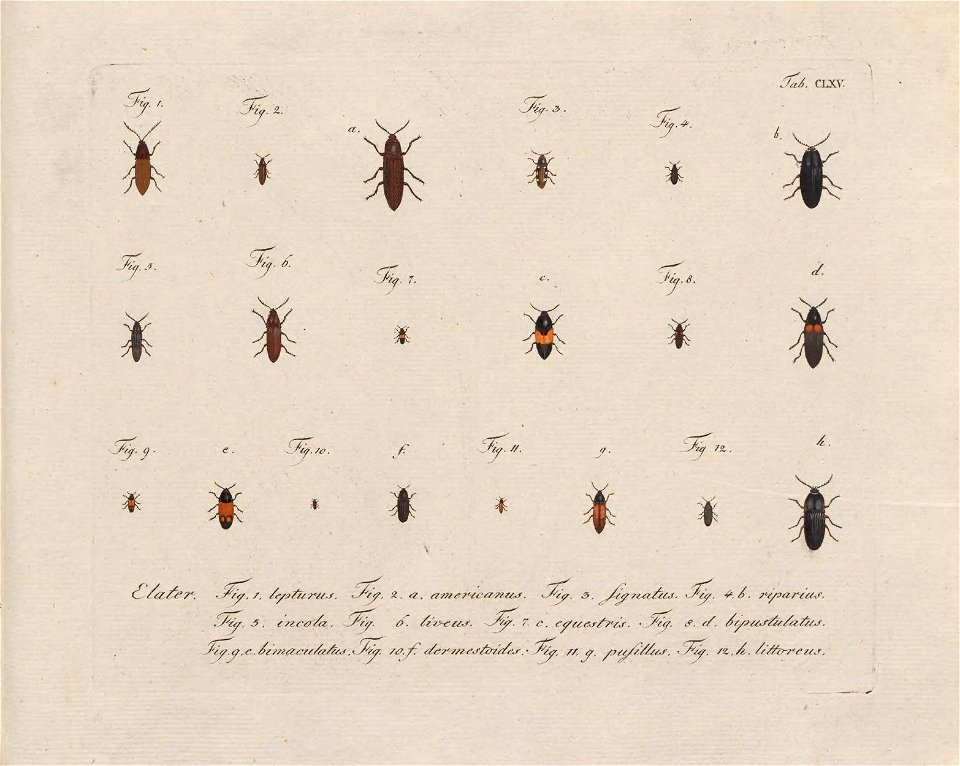 Tab. CLXV.
Fig. 1. Fig. 2. a. Fig. 3. Fig. 4. b.
Fig. 5. Fig. 6. Fig. 7. c. Fig. 8. d.
Fig. 9. e. Fig. 10. f. Fig. 11. g. Fig 12. h.
Elater. Fig. 1. lepturus. Fig. 2. a. americanus. Fig. 3. ſignatus. Fig. 4. b. riparius.
Fig. 5. incola. Fig. 6. liveus. Fig. 7. c. equestris. Fig. 8. d. bipustulatus.
Fig. 9. e. bimaculatus. Fig. 10. f. dermestoides. Fig. 11. g. puſillus. Fig. 12. h. littoreus.